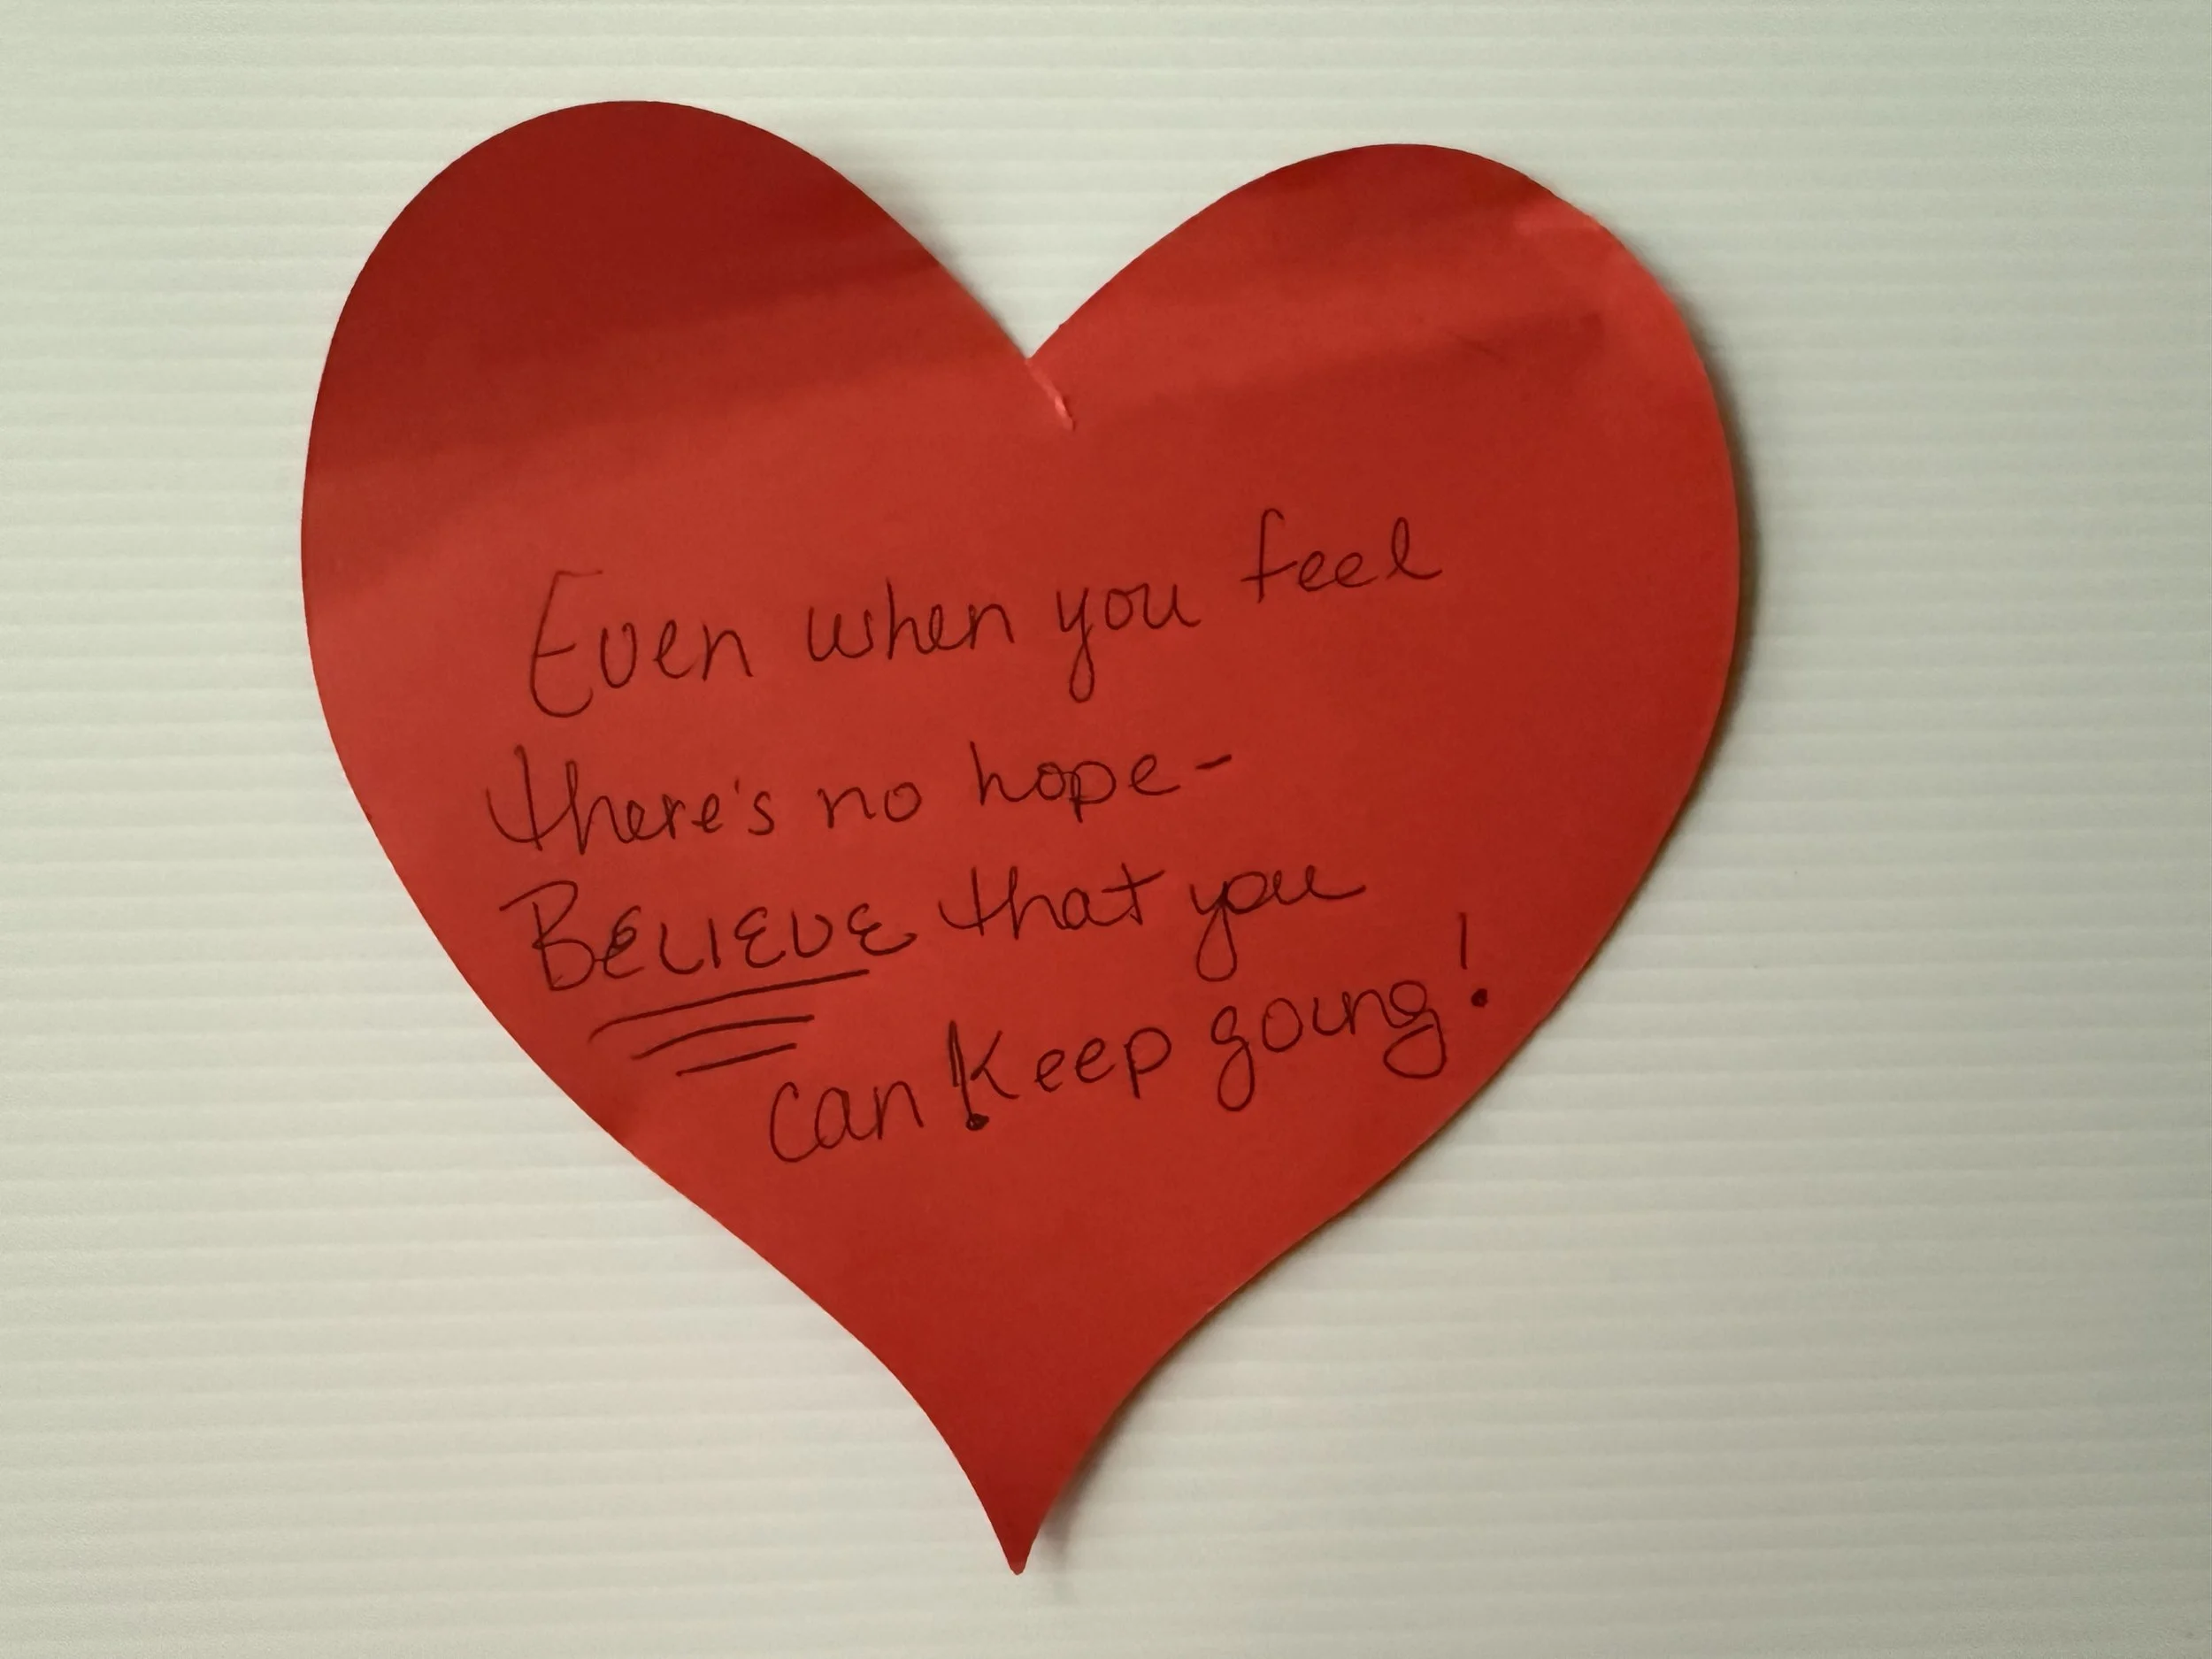 Even when you feel
there's no hope-
BELIEVE that you
can! Keep going!